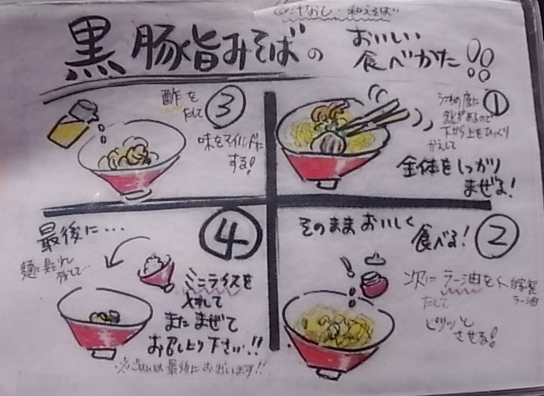 汁なし・和えそば
黒豚旨みそばの
おいしい
食べかた!!
①
うつわの底に
下から上をひっくり
かえして
全体をしっかり
まぜる!
②
そのままおいしく
食べる!
次にラー油を
たして
ピリッと
させる!
自家製
ラー油
③
酢を
たして
味をマイルドに
する!
④
最後に…
ミニライスを
入れて
またまぜて
お召し上り下さい!!
※ごはんは最後におだします!!